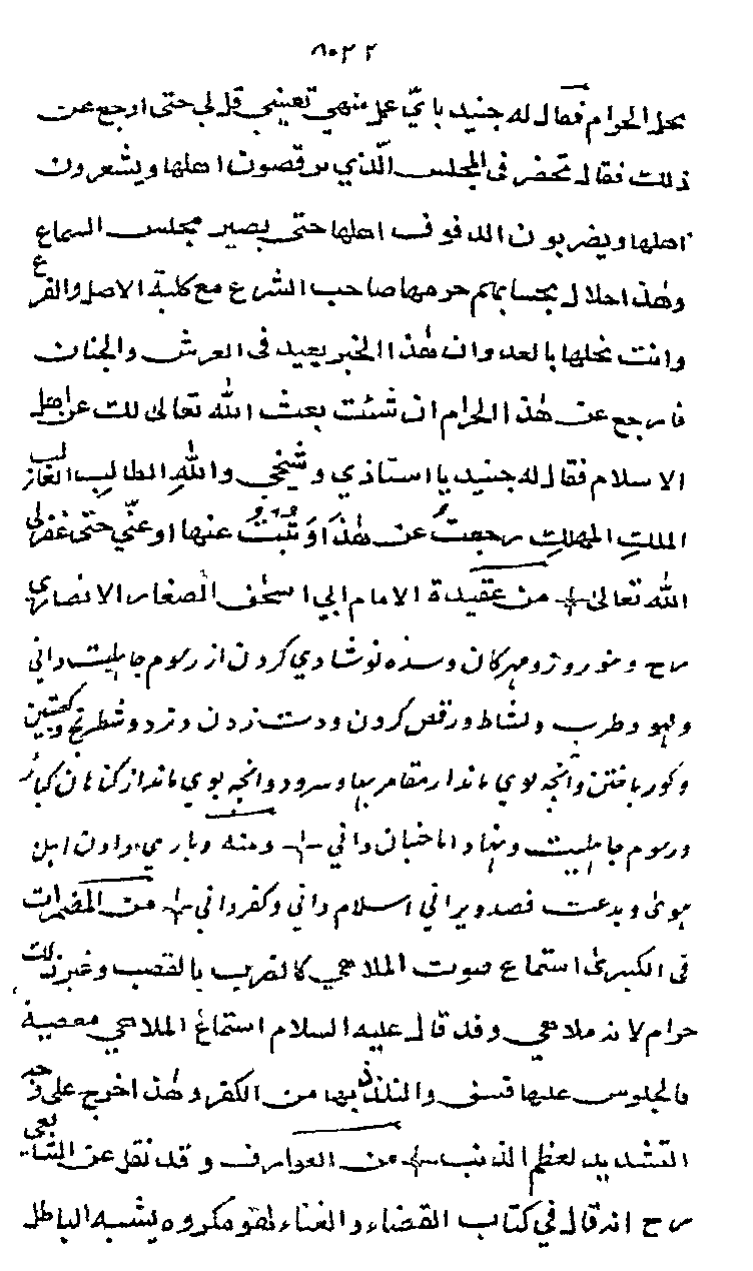 ٨٠٢٢
يحل الحرام فقال له جنيد باي عمل منهي تعينني قل لي حتى ارجع عن
ذلك فقال تحضر في المجلس الّذي يرقصون اهلها ويشعرون
اهلها ويضربون الدفوف اهلها حتى يصير مجلس السماع
وهٰذا احلال حرمها صاحب الشرع مع كلية الاصل والفرع
وانت تحلها بالعد وان هٰذا الخبر بعيد في العرش والجنان
فارجع عن هٰذا الحرام ان شئت بعث الله تعالى لك عن اهل
الاسلام فقال له جنيد يا استاذي وشيخي واللهِ الطالبِ الغالب
الملكِ المهلكِ رجعتُ عن هٰذَا وَتُبتُ عنها او عنّي حتى غفر لي
الله تعالىٰ من عقيدة الامام ابي اسحٰق الصغار الانصاري
رح ونوروز ومهركان وسده نو شادي كردن از رسوم جاهليت داني
ولهو وطرب ونشاط ورقص كردن ودست زدن ونرد وشطرنج وكعبتين
وكور باختن وانچه بوي ماند از مقامريها وسرود وانچه بوي ماند از كناهان كبائر
ورسوم جاهليت ونهاد اماخنيان داني ومنه وياري دادن اهل
هوىٰ وبدعت قصد ويراني اسلام داني وكفر داني من المضمرات
في الكبرىٰ استماع صوت الملاهي كالضرب بالقصب وغير ذلك
حرام لانه ملاهي وقد قال عليه السلام استماع الملاهي معصية
والجلوس عليها فسق والتلذذ بها من الكفر وهٰذا خرج على وجه
التشديد لعظم الذنب من العوارف وقد نقل عن الشافعي
رح انه قال في كتاب القضاء والغناء لهو مكروه يشبه الباطل